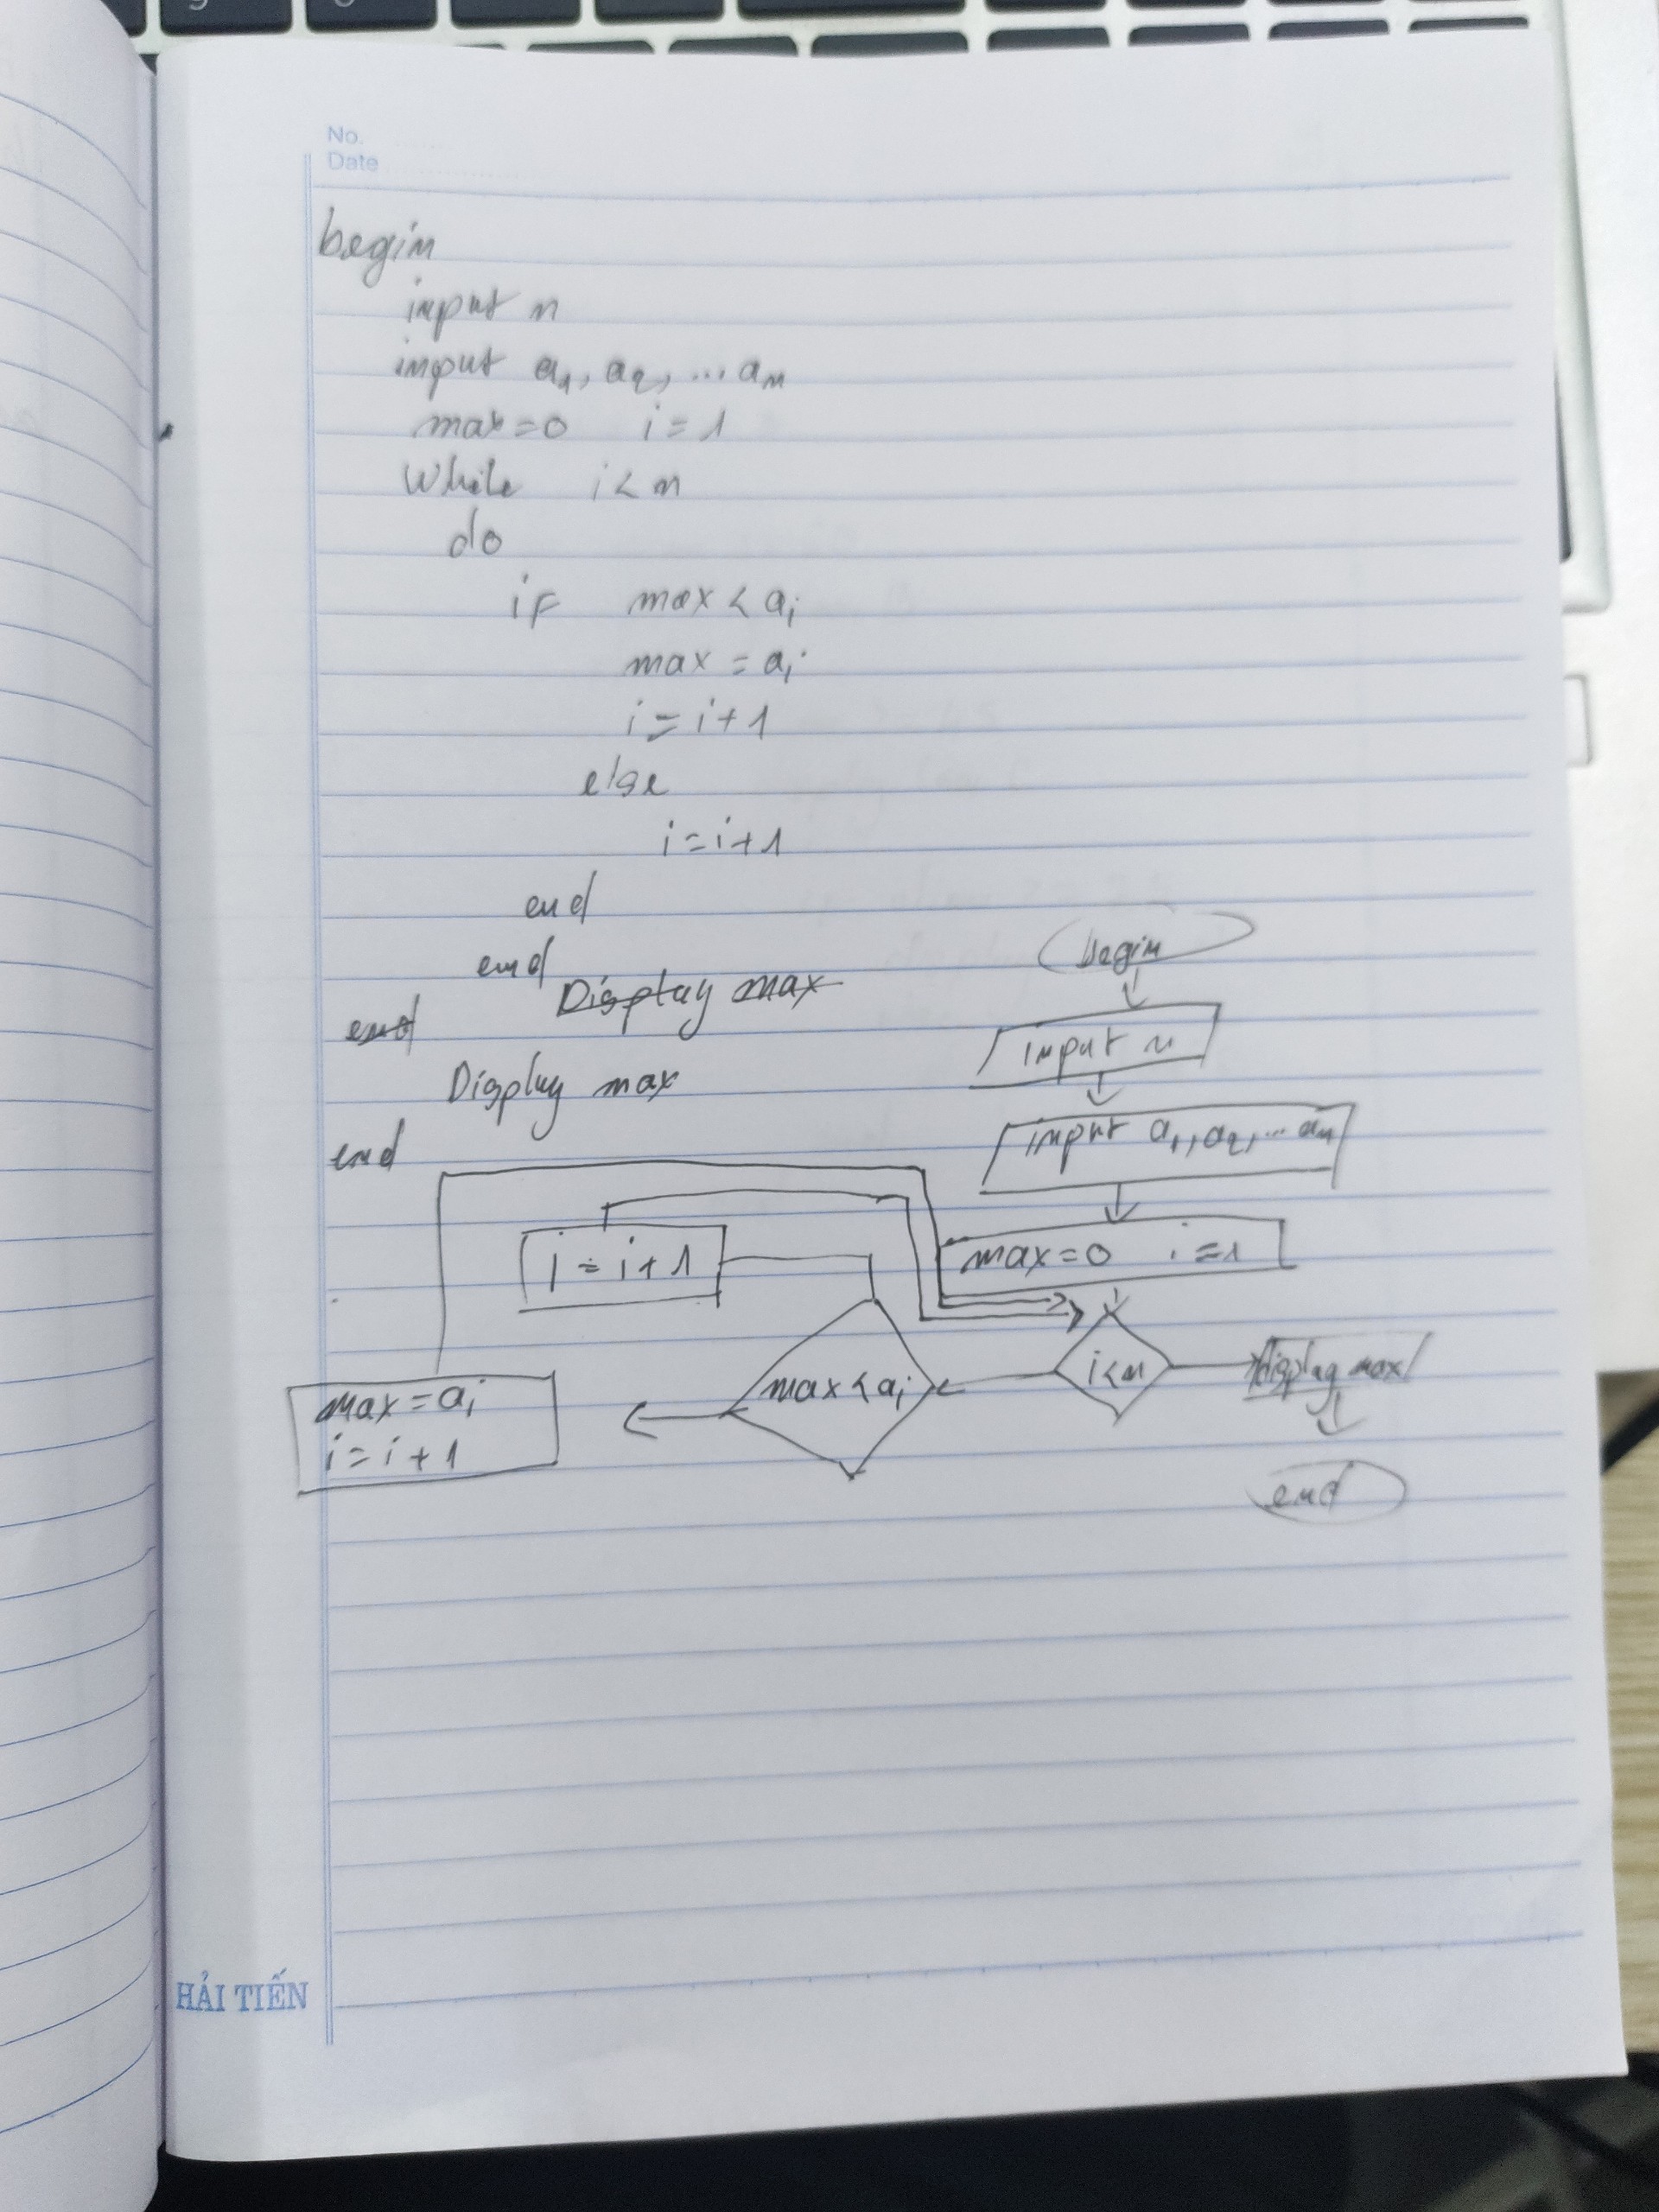 No.
Date
begin
input n
input a1, a2, ... an
max=0 i=1
While i<n
do
if max < ai
max = ai
i=i+1
else
i=i+1
end
end
Display max
end
Display max
end
begin
input n
input a1, a2, ... an
max=0 i=1
i<n
display max
end
max < ai
i=i+1
max=ai
i=i+1
HẢI TIẾN